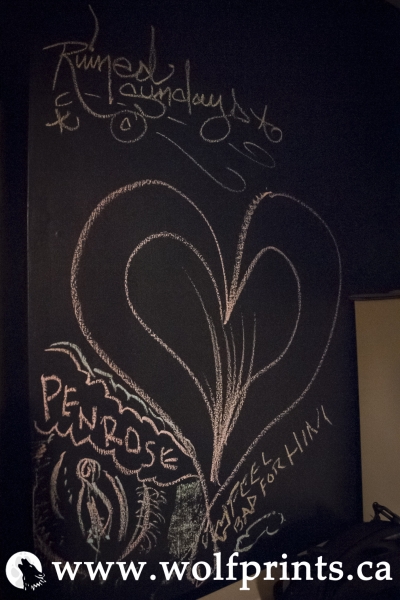 Ruined
Sundays
PENROSE
FEEL
BAD FOR HIM
www.wolfprints.ca